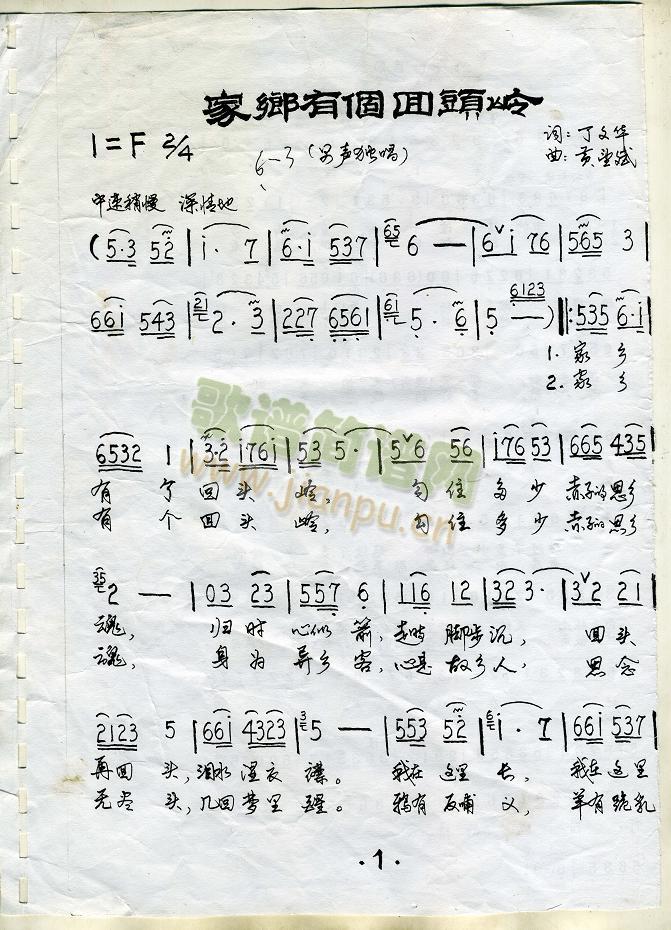 家鄉有個回頭岭
1=F 2/4
6—3（男声独唱）
词：丁文华
曲：黄圣斌
中速稍慢 深情地
(5·3 52 | i· 7 | 6·i 537 | 65 6 — | 6 i 76 | 565 3 |
66i 543 | 21 2· 3 | 227 6561 | 61 5· 6 | 5 — 6123 ) |: 535 6·i |
1. 家 乡
2. 家 乡
6532 1 | 3·2 i76i | 53 5· | 5 6 56 | i76 53 | 665 435 |
有 个 回 头 岭， 勾 住 多 少 赤子的思乡
有 个 回 头 岭， 勾 住 多 少 赤子的思乡
35 2 — | 03 23 | 557 6 | 116 12 | 32 3· | 3 2 21 |
魂， 归 时 心似 箭，走时 脚步 沉， 回 头
魂， 身 为 异乡 客，心是 故乡 人， 思 念
2123 5 | 66i 4323 | 3 5 — | 553 52 | 6 i· 7 | 66i 537 |
再回 头，泪水 湿衣 襟。 我在 这里 长， 我在 这里
无尽 头，几回 梦里 醒。 鸦有 反哺 义， 羊有 跪乳
·1·
歌谱简谱网
www.jianpu.cn